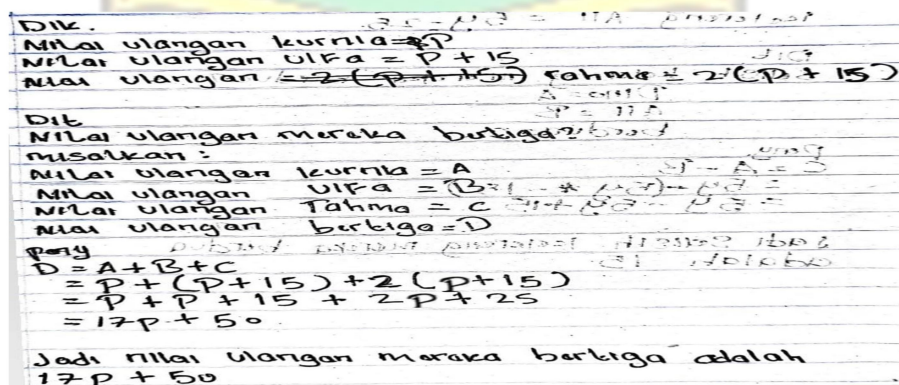 Dik.
Nilai ulangan kurnia = P
Nilai ulangan Ulfa = P + 15
Nilai ulangan = 2 (P + 15) rahma = 2 (P + 15)
Dit
Nilai ulangan mereka bertiga?
misalkan :
Nilai ulangan kurnia = A
Nilai ulangan Ulfa = B
Nilai ulangan rahma = C
Nilai ulangan bertiga = D
peny
D = A + B + C
= P + (P + 15) + 2 (P + 15)
= P + P + 15 + 2P + 25
= 17P + 50
Jadi nilai ulangan mereka bertiga adalah
17P + 50